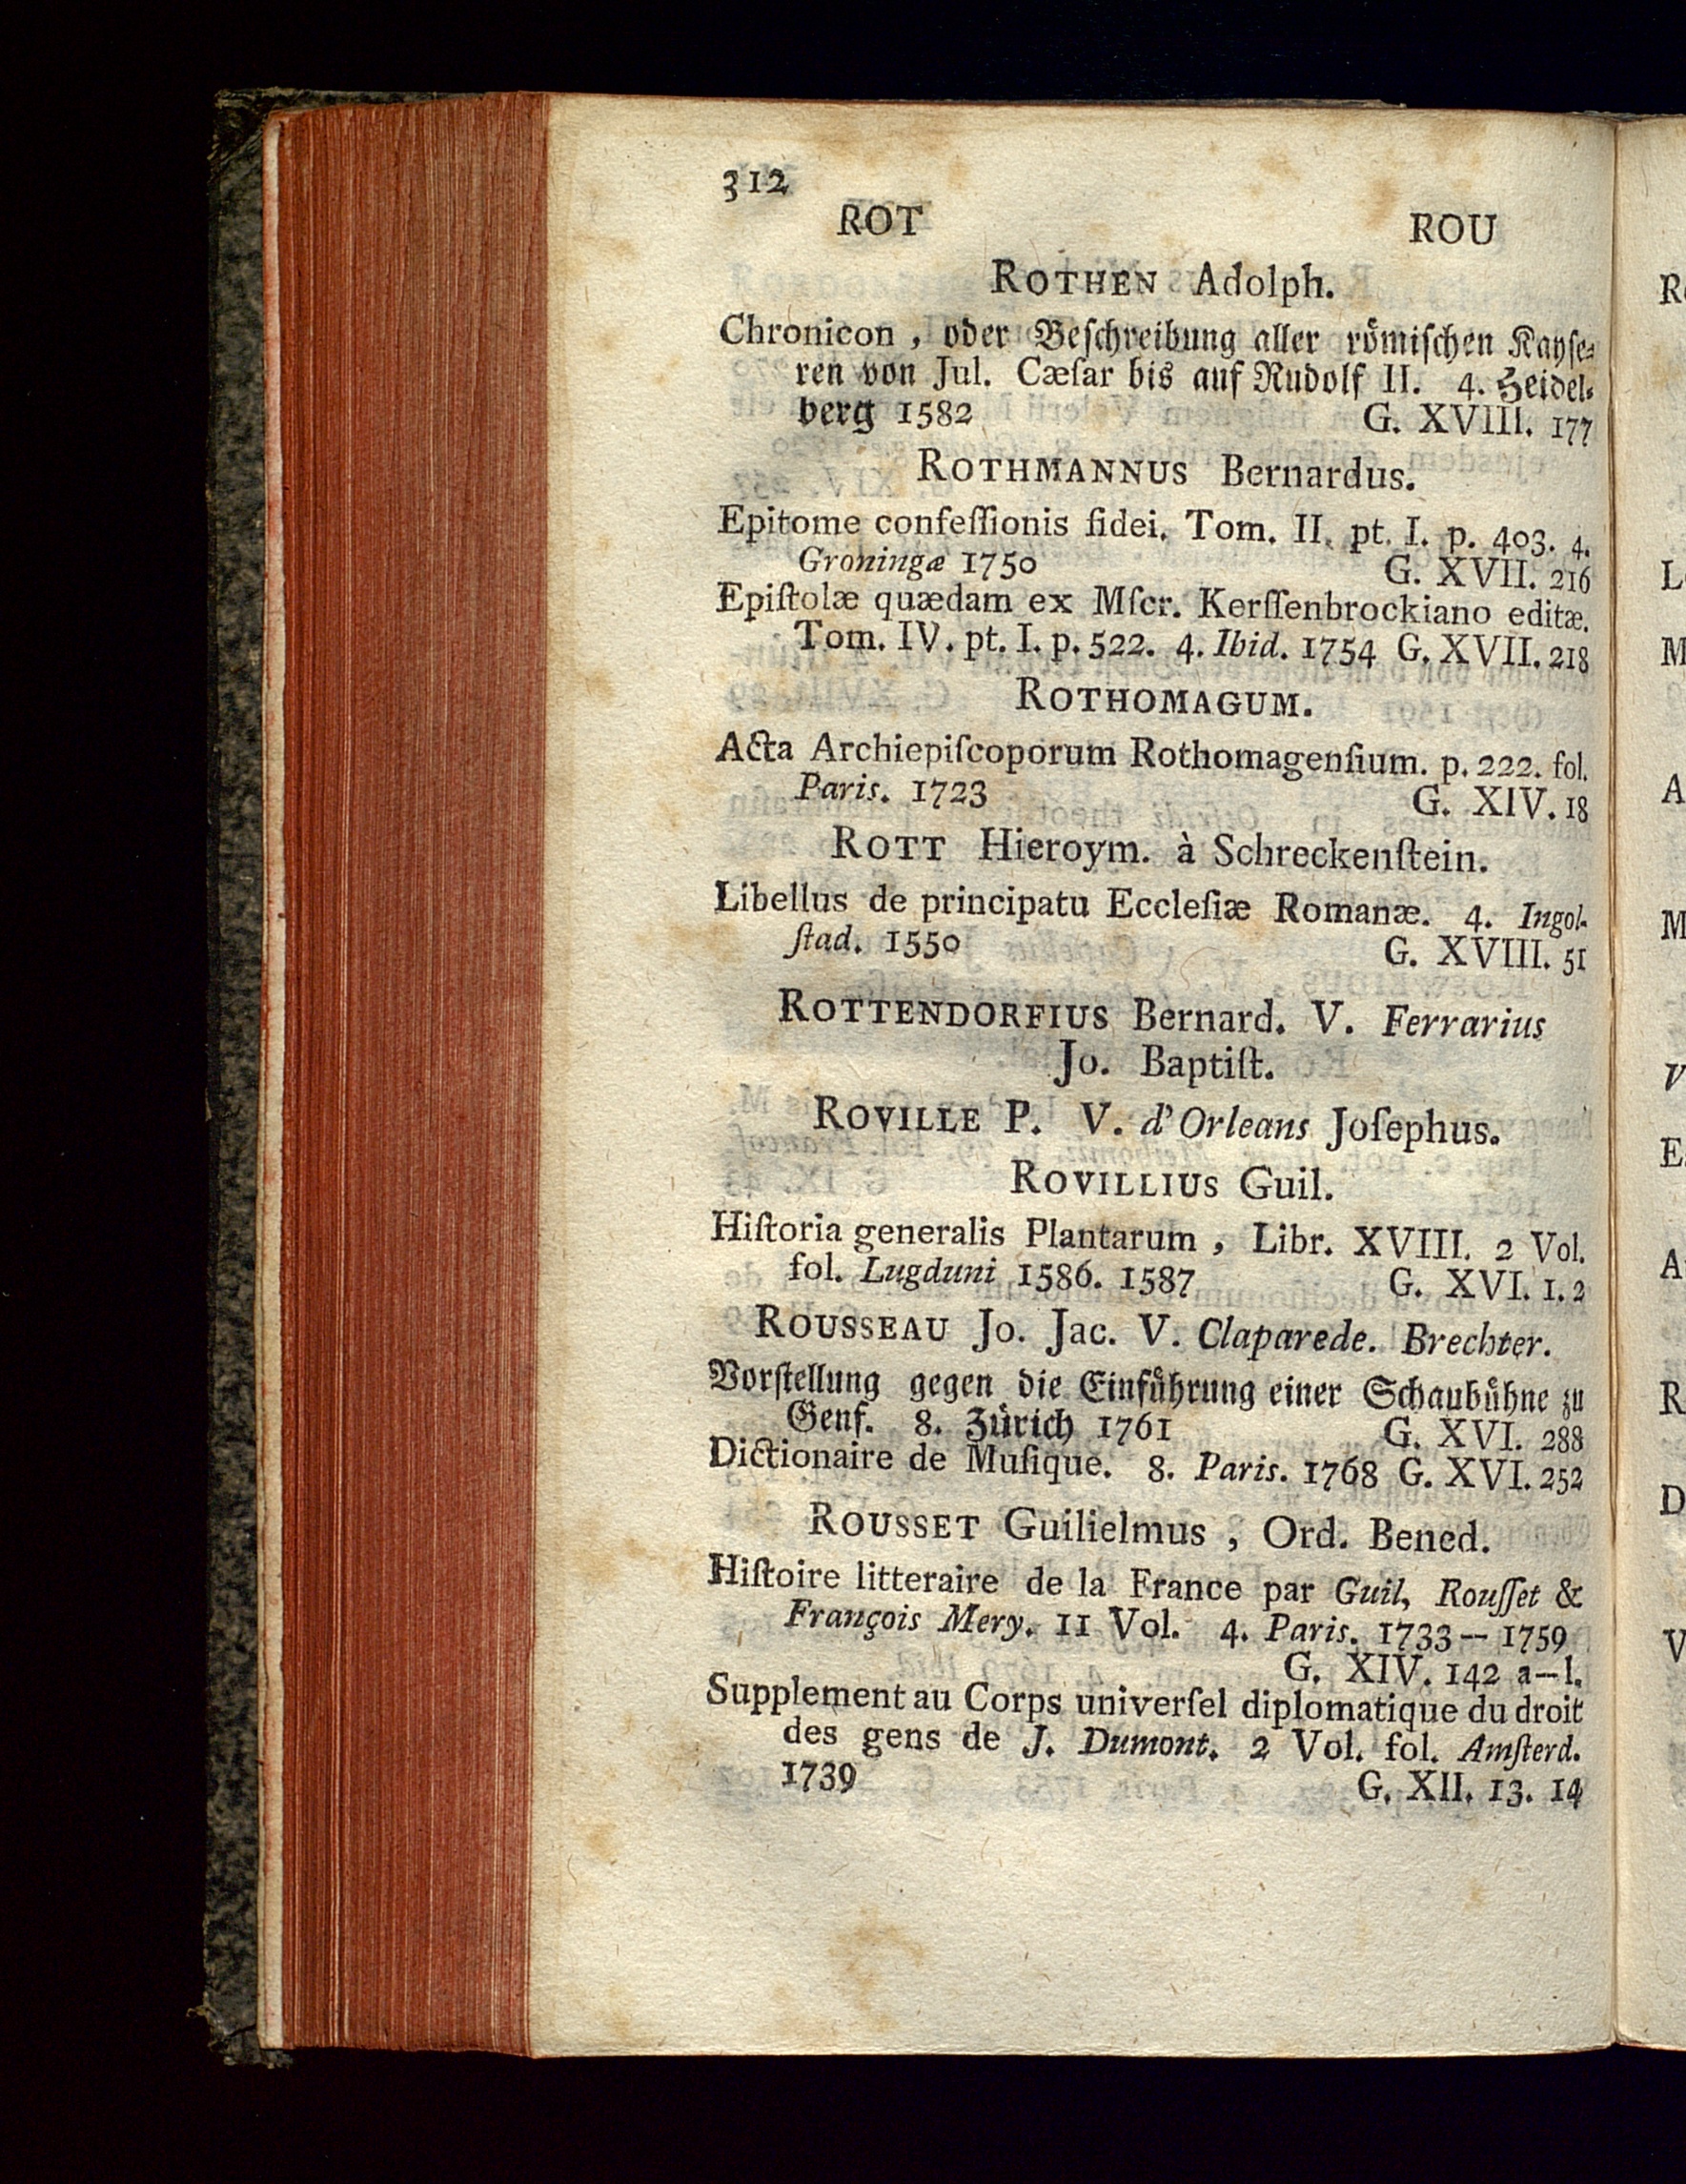 312
ROT ROU
ROTHEN Adolph.
Chronicon, oder Beſchreibung aller römiſchen Kayſe⸗
ren von Jul. Cæſar bis auf Rudolf II. 4. Heidel⸗
berg 1582 G. XVIII. 177
ROTHMANNUS Bernardus.
Epitome confeſſionis fidei. Tom. II. pt. I. p. 403. 4.
Groningæ 1750 G. XVII. 216
Epiſtolæ quædam ex Mſcr. Kerſſenbrockiano editæ.
Tom. IV. pt. I. p. 522. 4. Ibid. 1754 G. XVII. 218
ROTHOMAGUM.
Acta Archiepiſcoporum Rothomagenſium. p. 222. fol.
Paris. 1723 G. XIV. 18
ROTT Hieroym. à Schreckenſtein.
Libellus de principatu Eccleſiæ Romanæ. 4. Ingol-
ſtad. 1550 G. XVIII. 51
ROTTENDORFIUS Bernard. V. Ferrarius
Jo. Baptiſt.
ROVILLE P. V. d'Orleans Joſephus.
ROVILLIUS Guil.
Hiſtoria generalis Plantarum, Libr. XVIII. 2 Vol.
fol. Lugduni 1586. 1587 G. XVI. 1. 2
ROUSSEAU Jo. Jac. V. Claparede. Brechter.
Vorſtellung gegen die Einführung einer Schaubühne zu
Genf. 8. Zürich 1761 G. XVI. 288
Dictionaire de Muſique. 8. Paris. 1768 G. XVI. 252
ROUSSET Guilielmus, Ord. Bened.
Hiſtoire litteraire de la France par Guil, Rouſſet &
François Mery. 11 Vol. 4. Paris. 1733-- 1759
G. XIV. 142 a--l.
Supplement au Corps univerſel diplomatique du droit
des gens de J. Dumont. 2 Vol. fol. Amſterd.
1739 G. XII. 13. 14